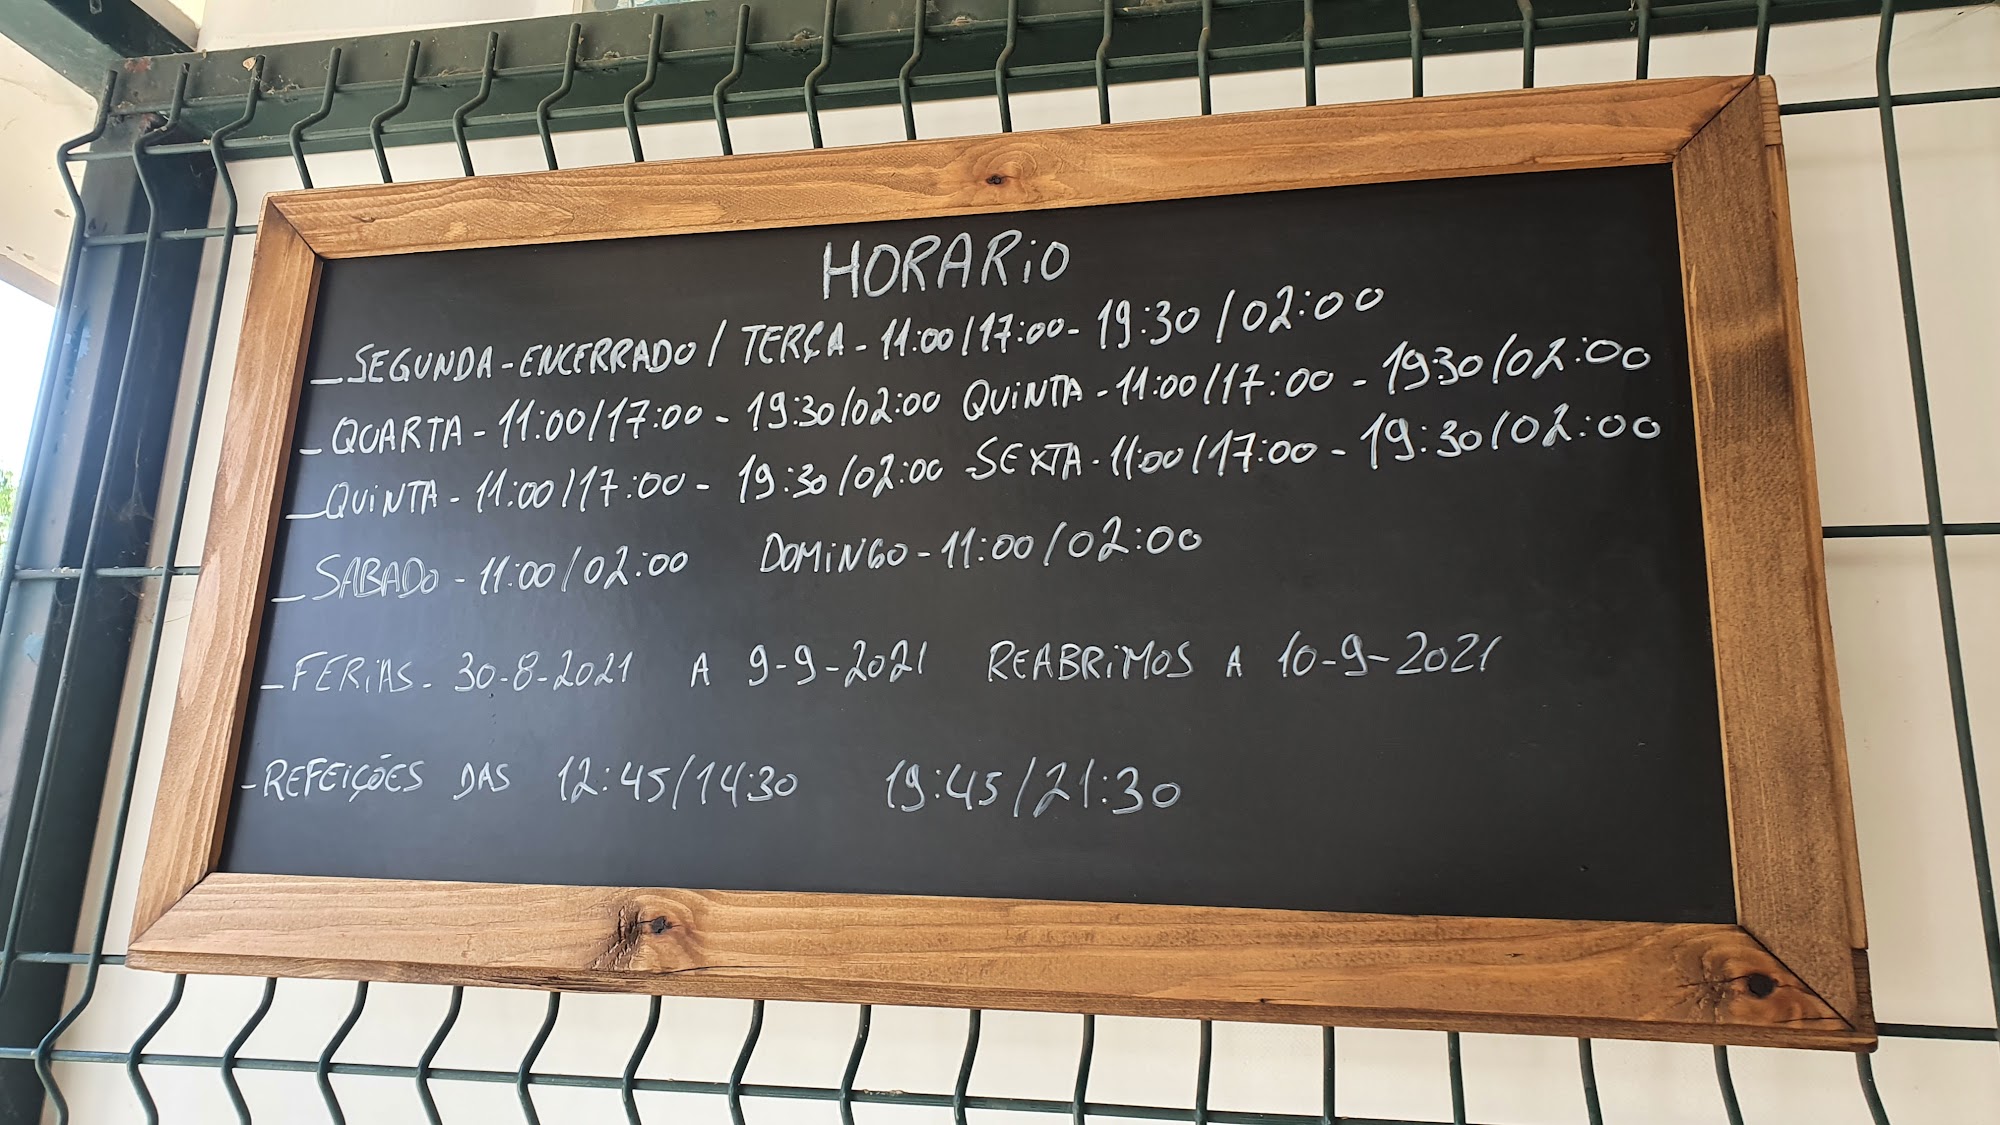 HORARIO
_SEGUNDA - ENCERRADO / TERÇA - 11:00/17:00 - 19:30/02:00
_QUARTA - 11:00/17:00 - 19:30/02:00 QUINTA - 11:00/17:00 - 19:30/02:00
_QUINTA - 11:00/17:00 - 19:30/02:00 -SEXTA - 11:00/17:00 - 19:30/02:00
_SABADO - 11:00/02:00 DOMINGO - 11:00/02:00
_FERIAS - 30-8-2021 A 9-9-2021 REABRIMOS A 10-9-2021
-REFEIÇÕES DAS 12:45/14:30 19:45/21:30